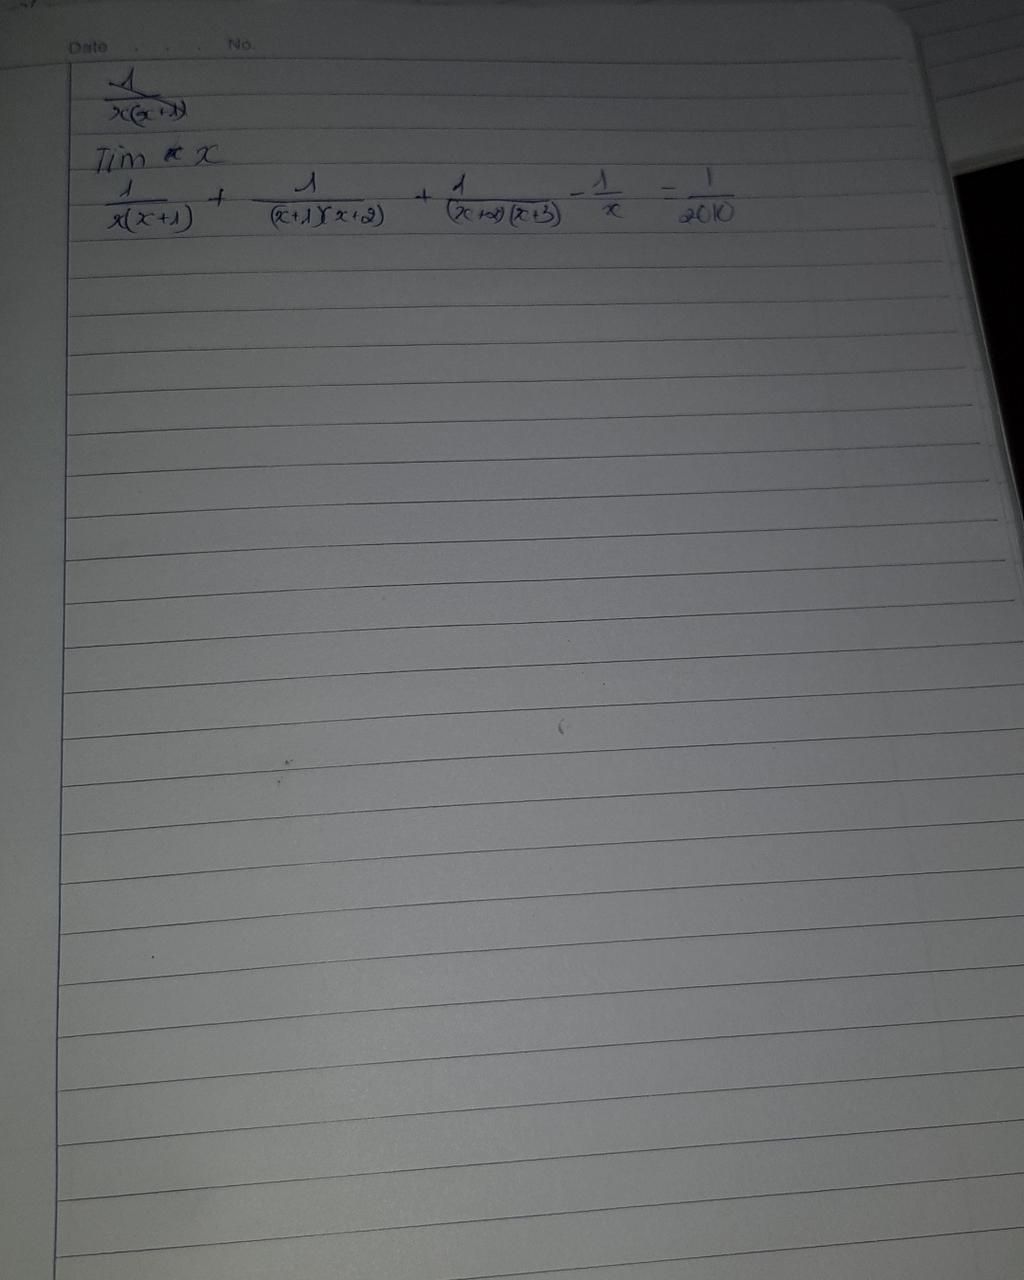 Date . . . No.
1/x(x+1)
Tim x
1/x(x+1) + 1/(x+1)(x+2) + 1/(x+2)(x+3) - 1/x = 1/2010